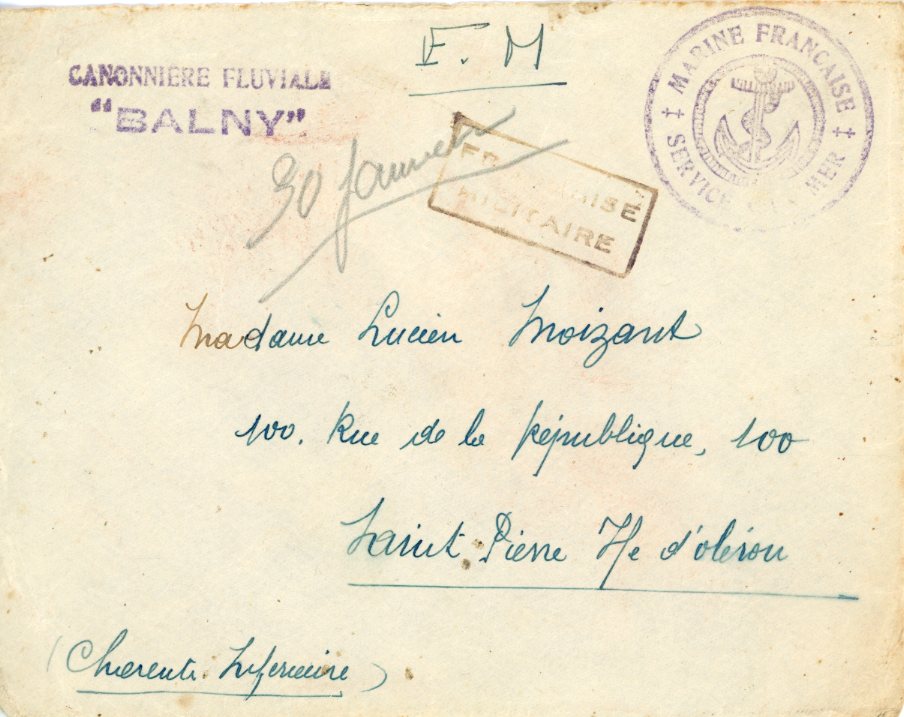 F. M
CANONNIÈRE FLUVIALE
"BALNY"
MARINE FRANÇAISE
SERVICE MER
30 Janvier
FR ISE
MILITAIRE
Madame Lucien Moizant
100. Rue de la République, 100
Saint Pierre Ile d'oléron
(Charente Inférieure)